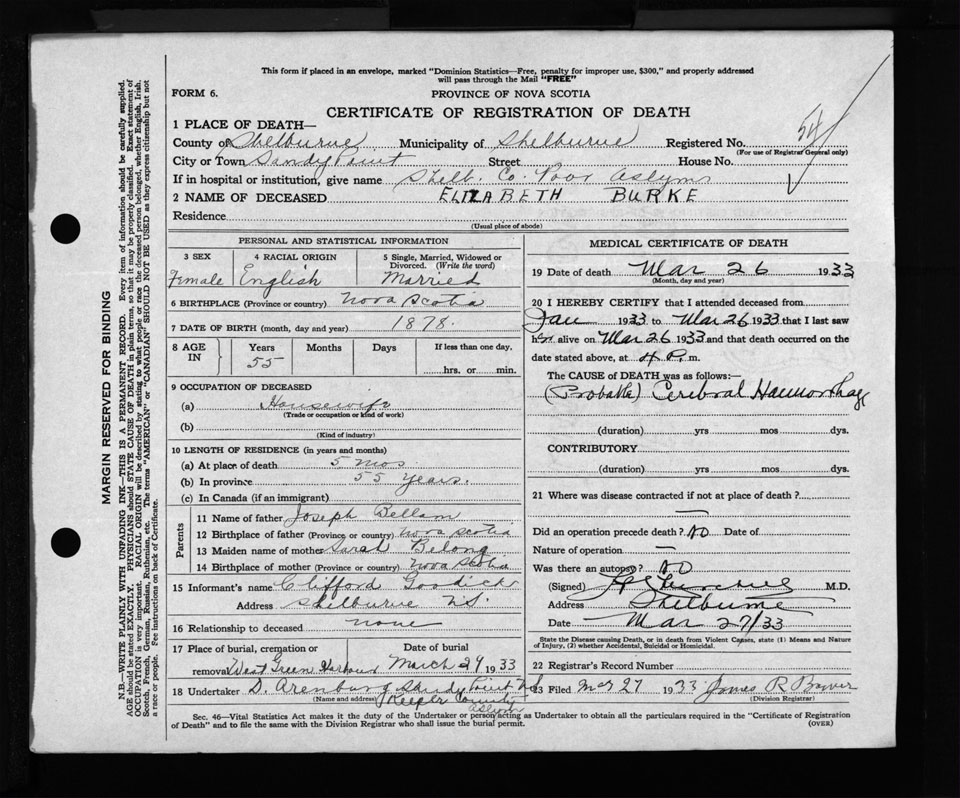 This form if placed in an envelope, marked "Dominion Statistics—Free, penalty for improper use, $300," and properly addressed
will pass through the Mail "FREE"
FORM 6.
PROVINCE OF NOVA SCOTIA
CERTIFICATE OF REGISTRATION OF DEATH
54
1 PLACE OF DEATH—
County of Shelburne Municipality of Shelburne Registered No.
(For use of Registrar General only)
City or Town Sandy Point Street House No.
If in hospital or institution, give name Shelb. Co. Poor Aslym
2 NAME OF DECEASED ELIZABETH BURKE
Residence
(Usual place of abode)
PERSONAL AND STATISTICAL INFORMATION
3 SEX
Female
4 RACIAL ORIGIN
English
5 Single, Married, Widowed or
Divorced. (Write the word)
Married
6 BIRTHPLACE (Province or country) Nova Scotia
7 DATE OF BIRTH (month, day and year) 1878.
8 AGE IN
Years
55
Months
Days
If less than one day,
hrs. or min.
9 OCCUPATION OF DECEASED
(a) Housewife
(Trade or occupation or kind of work)
(b)
(Kind of industry)
10 LENGTH OF RESIDENCE (in years and months)
(a) At place of death 5 mos
(b) In province 55 Years.
(c) In Canada (if an immigrant)
Parents
11 Name of father Joseph Bellam
12 Birthplace of father (Province or country) Nova Scotia
13 Maiden name of mother Sarah Belong
14 Birthplace of mother (Province or country) Nova Scotia
15 Informant's name Clifford Goodick
Address Shelburne N.S.
16 Relationship to deceased none
17 Place of burial, cremation or
removal West Green Harbour
Date of burial
March 29 1933
18 Undertaker D. Arenburg Sandy Point N.S
(Name and address) Keeper County
Aslym
MEDICAL CERTIFICATE OF DEATH
19 Date of death Mar 26 1933
(Month, day and year)
20 I HEREBY CERTIFY that I attended deceased from
Jan 1933 to Mar 26 1933 that I last saw
her alive on Mar 26 1933 and that death occurred on the
date stated above, at 4 P. m.
The CAUSE of DEATH was as follows:—
(Probable) Cerebral Haemorrhage
(duration) yrs mos dys.
CONTRIBUTORY
(duration) yrs mos dys.
21 Where was disease contracted if not at place of death?
—
Did an operation precede death? NO Date of
Nature of operation —
Was there an autopsy? NO
(Signed) M.D.
Address Shelburne
Date Mar 27/33
State the Disease causing Death, or in death from Violent Causes, state (1) Means and Nature
of Injury, (2) whether Accidental, Suicidal or Homicidal.
22 Registrar's Record Number
23 Filed Mar 27 1933 James R Bower
(Division Registrar)
Sec. 46—Vital Statistics Act makes it the duty of the Undertaker or person acting as Undertaker to obtain all the particulars required in the "Certificate of Registration
of Death" and to file the same with the Division Registrar who shall issue the burial permit. (OVER)
MARGIN RESERVED FOR BINDING
N.B.—WRITE PLAINLY WITH UNFADING INK—THIS IS A PERMANENT RECORD. Every item of information should be carefully supplied.
AGE should be stated EXACTLY. PHYSICIANS should STATE CAUSE OF DEATH in plain terms, so that it may be properly classified. Exact statement of
OCCUPATION is very important. RACIAL ORIGIN will be described by stating to what people or race the deceased person belonged, whether English, Irish,
Scotch, French, German, Russian, Ruthenian, etc. The terms "AMERICAN" or "CANADIAN" SHOULD NOT BE USED as they express citizenship but not
a race or people. Fee instructions on back of Certificate.